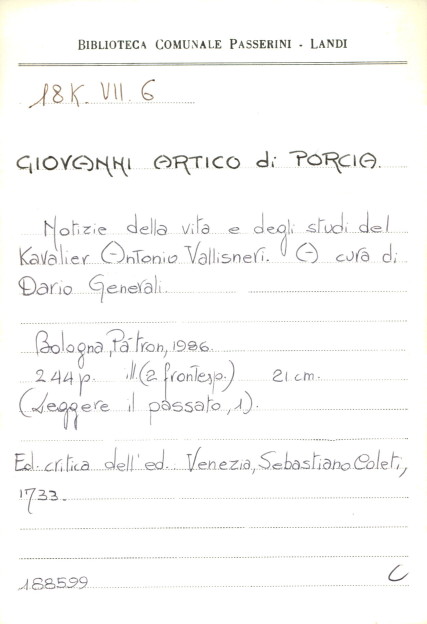 BIBLIOTECA COMUNALE PASSERINI - LANDI
18K. VII. 6
GIOVANNI ARTICO di PORCIA.
Notizie della vita e degli studi del
Kavalier Antonio Vallisneri. A cura di
Dario Generali.
Bologna, Pàtron, 1986.
244 p. ill. (2 frontesp.) 21 cm.
(Leggere il passato, 1).
Ed. critica dell'ed. Venezia, Sebastiano Coleti,
1733.
188599
C